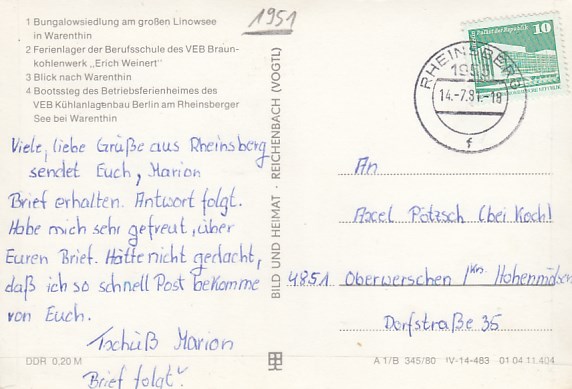 1 Bungalowsiedlung am großen Linowsee
in Warenthin
2 Ferienlager der Berufsschule des VEB Braun-
kohlenwerk „Erich Weinert"
3 Blick nach Warenthin
4 Bootssteg des Betriebsferienheimes des
VEB Kühlanlagenbau Berlin am Rheinsberger
See bei Warenthin
1951
RHEINSBERG
1955
14.-7.81.-18
f
10
Palast der Republik
Viele, liebe Grüße aus Rheinsberg
sendet Euch, Marion
Brief erhalten. Antwort folgt.
Habe mich sehr gefreut, über
Euren Brief. Hätte nicht gedacht,
daß ich so schnell Post bekomme
von Euch.
Tschüß Marion
Brief folgt!
BILD UND HEIMAT · REICHENBACH (VOGTL)
An
Axel Pötzsch (bei Koch)
4851 Oberwerschen /Krs. Hohenmölsen
Dorfstraße 35
DDR 0,20 M
A 1/B 345/80 IV-14-483 01 04 11 404